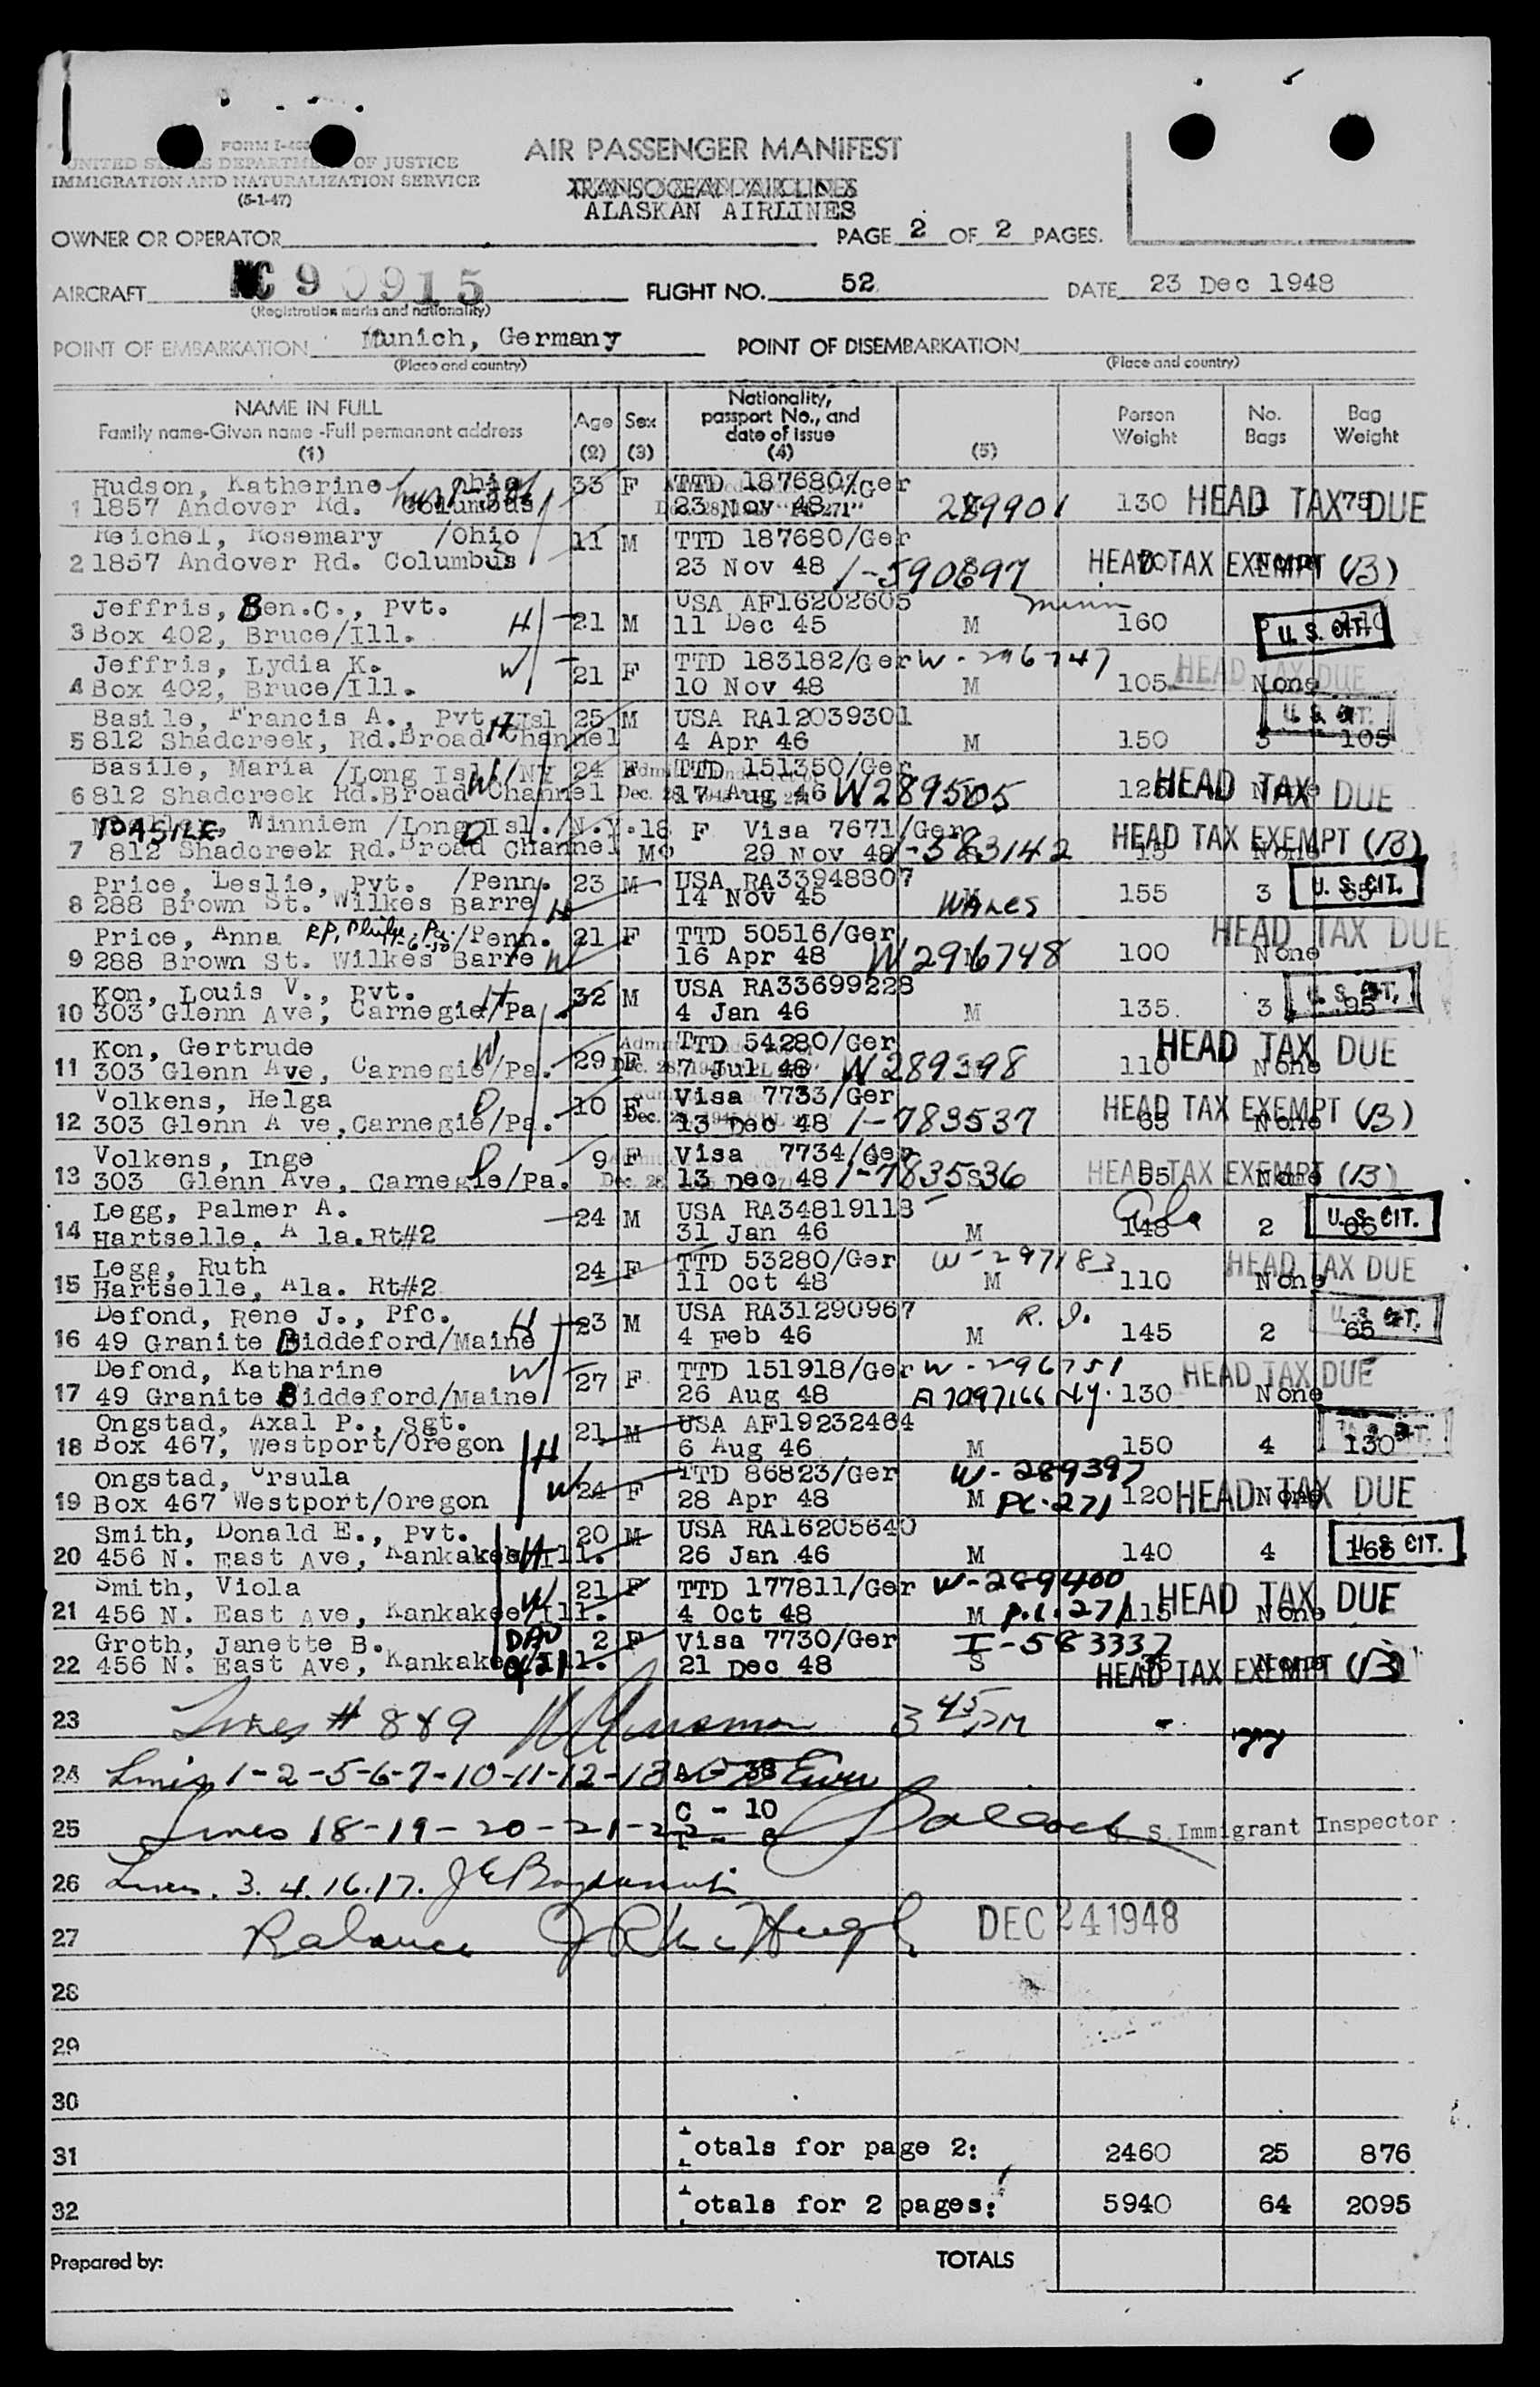 FORM I-466
UNITED STATES DEPARTMENT OF JUSTICE
IMMIGRATION AND NATURALIZATION SERVICE
(5-1-47)
AIR PASSENGER MANIFEST
TRANSOCEAN AIRLINES
ALASKAN AIRLINES
OWNER OR OPERATOR
PAGE 2 OF 2 PAGES.
AIRCRAFT NC 90915 FLIGHT NO. 52 DATE 23 Dec 1948
(Registration marks and nationality)
POINT OF EMBARKATION Munich, Germany POINT OF DISEMBARKATION
(Place and country) (Place and country)
NAME IN FULL Age Sex Nationality, passport No., and date of issue Person Weight No. Bags Bag Weight
Family name-Given name -Full permanent address
(1) (2) (3) (4) (5)
Hudson, Katherine Ohio 33 F TTD 187680/Ger
1 1857 Andover Rd. Columbus 23 Nov 48 289901 130 1 75 HEAD TAX DUE
Reichel, Rosemary /Ohio 11 M TTD 187680/Ger
2 1857 Andover Rd. Columbus 23 Nov 48 1-590697 None HEAD TAX EXEMPT (B)
Jeffris, Ben.C., Pvt. H 21 M USA AF16202605 Minn
3 Box 402, Bruce/Ill. 11 Dec 45 M 160 U. S. CIT.
Jeffris, Lydia K. W 21 F TTD 183182/Ger W-296747
4 Box 402, Bruce/Ill. 10 Nov 48 M 105 None HEAD TAX DUE
Basile, Francis A., Pvt. H 25 M USA RA12039301 U. S. CIT.
5 812 Shadcreek, Rd.Broad Channel 4 Apr 46 M 150 3 105
Basile, Maria /Long Isl./NY W 24 F TTD 151350/Ger
6 812 Shadcreek Rd.Broad Channel 17 Aug 46 W289505 HEAD TAX DUE
BASILE, Winniem /Long Isl./N.Y. D 18 F Visa 7671/Ger
7 812 Shadcreek Rd.Broad Channel Mo 29 Nov 48 1-583142 15 None HEAD TAX EXEMPT (B)
Price, Leslie, Pvt. /Penn. 23 M USA RA33948807
8 288 Brown St. Wilkes Barre H 14 Nov 45 WALES 155 3 65 U. S. CIT.
Price, Anna /Penn. 21 F TTD 50516/Ger
9 288 Brown St. Wilkes Barre W 16 Apr 48 W296748 100 None HEAD TAX DUE
Kon, Louis V., Pvt. H 32 M USA RA33699228
10 303 Glenn Ave, Carnegie/Pa. 4 Jan 46 M 135 3 95 U. S. CIT.
Kon, Gertrude W 29 F TTD 54280/Ger
11 303 Glenn Ave, Carnegie/Pa. 7 Jul 48 W289398 110 None HEAD TAX DUE
Volkens, Helga D 10 F Visa 7733/Ger
12 303 Glenn A ve,Carnegie/Pa. 13 Dec 48 1-783537 65 None HEAD TAX EXEMPT (B)
Volkens, Inge D 9 F Visa 7734/Ger
13 303 Glenn Ave, Carnegie/Pa. 13 Dec 48 1-783536 55 None HEAD TAX EXEMPT (B)
Legg, Palmer A. 24 M USA RA34819118 Ala
14 Hartselle, A la.Rt#2 31 Jan 46 M 148 2 66 U. S. CIT.
Legg, Ruth 24 F TTD 53280/Ger W-297183
15 Hartselle, Ala. Rt#2 11 Oct 48 M 110 None HEAD TAX DUE
Defond, Rene J., Pfc. H 23 M USA RA31290967 R. I.
16 49 Granite Biddeford/Maine 4 Feb 46 M 145 2 65 U. S. CIT.
Defond, Katharine W 27 F TTD 151918/Ger W-296751
17 49 Granite Biddeford/Maine 26 Aug 48 A7097166 N.Y. 130 None HEAD TAX DUE
Ongstad, Axal P., Sgt. H 21 M USA AF19232464
18 Box 467, Westport/Oregon 6 Aug 46 M 150 4 130
Ongstad, Ursula W 24 F TTD 86823/Ger W-289397
19 Box 467 Westport/Oregon 28 Apr 48 M PL-271 120 None HEAD TAX DUE
Smith, Donald E., Pvt. 20 M USA RA16205640
20 456 N. East Ave, Kankakee/Ill. H 26 Jan 46 M 140 4 U. S. CIT.
Smith, Viola W 21 F TTD 177811/Ger W-289400
21 456 N. East Ave, Kankakee/Ill. 4 Oct 48 M P.L.271 115 None HEAD TAX DUE
Groth, Janette B. DAU 2 F Visa 7730/Ger I-583337
22 456 N. East Ave, Kankakee/Ill. 21 Dec 48 S 35 None HEAD TAX EXEMPT (B)
23 Lines # 8&9 3 45 PM
24 Lines 1-2-5-6-7-10-11-12-13 A - 38
C - 10
25 Lines 18-19-20-21-22 U. S. Immigrant Inspector
26 Lines. 3. 4. 16. 17.
27 Balance DEC 24 1948
28
29
30
31 Totals for page 2: 2460 25 876
32 Totals for 2 pages: 5940 64 2095
Prepared by: TOTALS